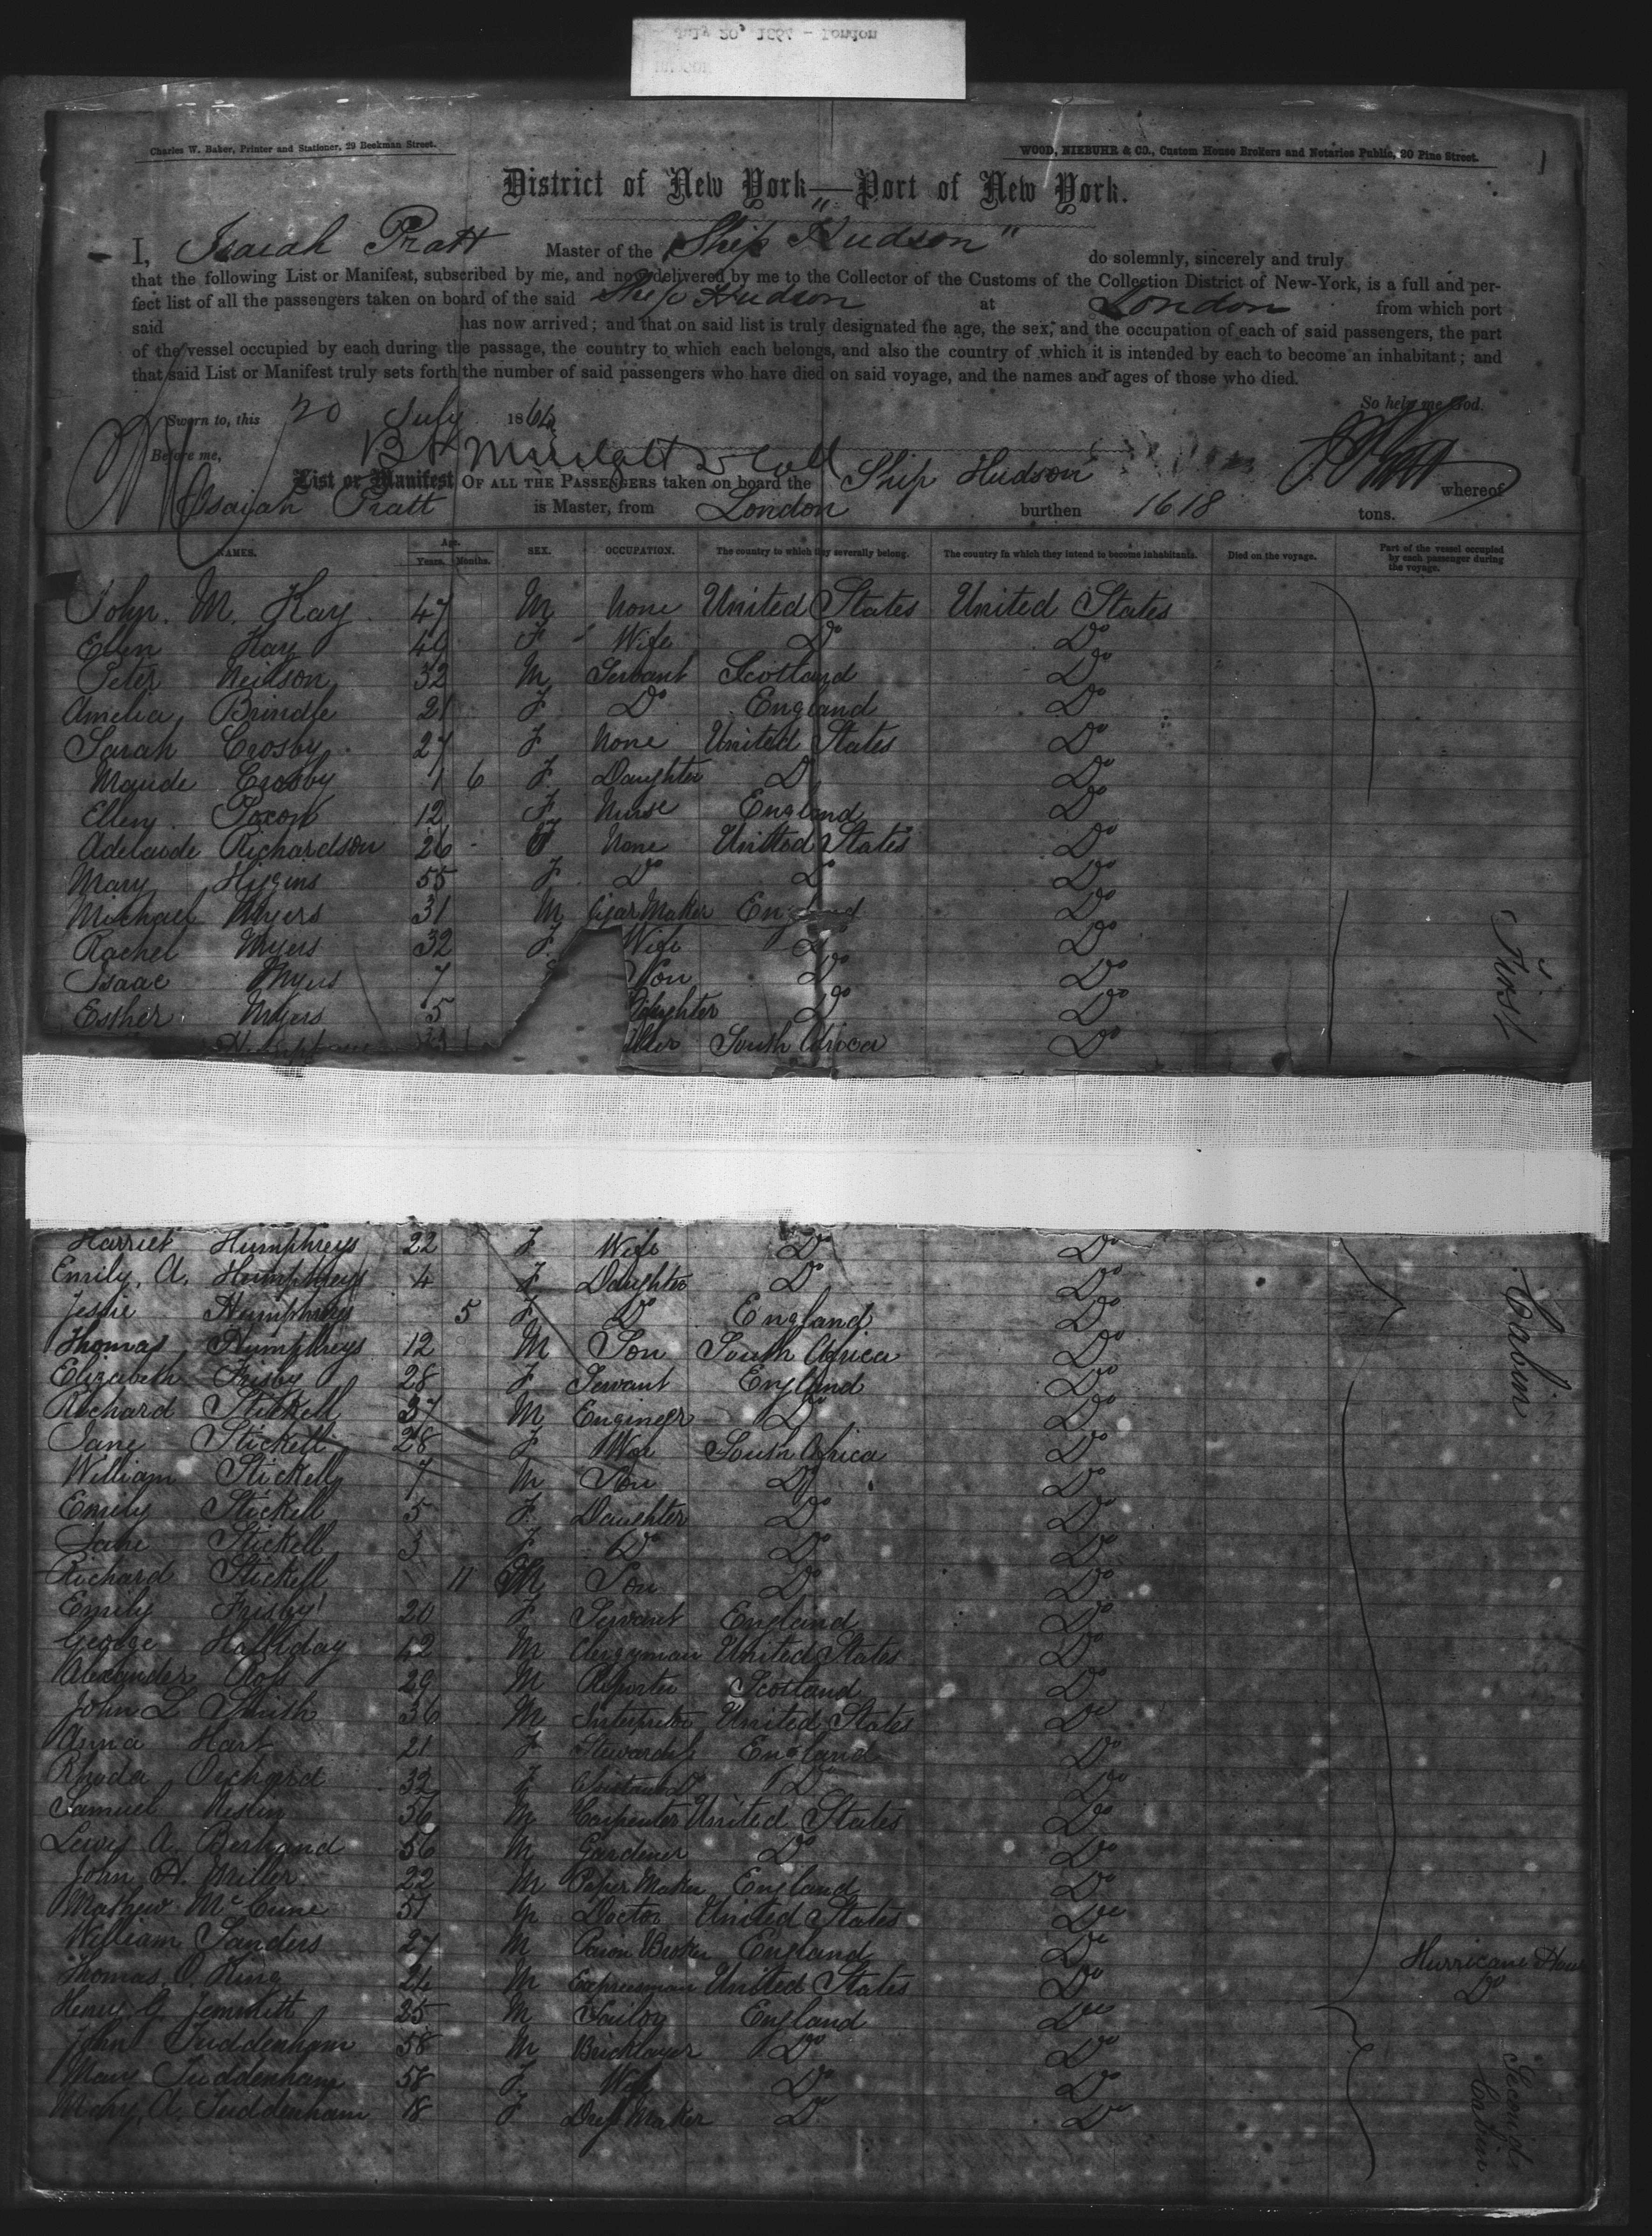 July 20, 1864 - London
Charles W. Baker, Printer and Stationer, 29 Beekman Street.
WOOD, NIEBUHR & CO., Custom House Brokers and Notaries Public, 20 Pine Street.
District of New York—Port of New York.
I, Isaiah Pratt Master of the Ship "Hudson" do solemnly, sincerely and truly
that the following List or Manifest, subscribed by me, and now delivered by me to the Collector of the Customs of the Collection District of New-York, is a full and per-
fect list of all the passengers taken on board of the said Ship Hudson at London from which port
said has now arrived; and that on said list is truly designated the age, the sex, and the occupation of each of said passengers, the part
of the vessel occupied by each during the passage, the country to which each belongs, and also the country of which it is intended by each to become an inhabitant; and
that said List or Manifest truly sets forth the number of said passengers who have died on said voyage, and the names and ages of those who died.
So help me God.
Sworn to, this 20 July 1864
Before me,
List or Manifest OF ALL THE PASSENGERS taken on board the Ship Hudson whereof
Isaiah Pratt is Master, from London burthen 1618 tons.
NAMES. Age. Years. Months. SEX. OCCUPATION. The country to which they severally belong. The country in which they intend to become inhabitants. Died on the voyage. Part of the vessel occupied by each passenger during the voyage.
John. M. Kay 47 M None United States United States
Ellen Kay 46 F Wife Do Do
Peter Neilson 32 M Servant Scotland Do
Amelia Brindle 21 F Do England Do
Sarah Crosby 27 F None United States Do
Maude Crosby 1 6 F Daughter Do Do
Ellen Paxon 12 F Nurse England Do
Adelaide Richardson 26 F None United States Do
Mary Higins 55 F Do Do Do
Michael Myers 31 M Cigar Maker England Do
Rachel Myers 32 F Wife Do Do
Isaac Myers 7 Son Do Do
Esther Myers 5 Daughter Do Do
South Africa Do
First
Harriet Humphreys 22 F Wife Do Do
Emily. A. Humphreys 4 F Daughter Do Do
Jessie Humphreys 5 F Do England Do
Thomas Humphreys 12 M Son South Africa Do
Elizabeth Frisby 28 F Servant England Do
Richard Stickell 37 M Engineer Do Do
Jane Stickell 28 F Wife South Africa Do
William Stickell 7 M Son Do Do
Emily Stickell 5 F Daughter Do Do
Jane Stickell 3 F Do Do Do
Richard Stickell 11 M Son Do Do
Emily Frisby 20 F Servant England Do
George Halliday 42 M Clergyman United States Do
Alexander Ross 29 M Reporter Scotland Do
John L Smith 36 M Interpreter United States Do
Anna Hart 21 F Stewardess England Do
Rhoda Orchard 32 F Do Do
Samuel 56 M Carpenter United States Do
Lewis A. Bertrand 56 M Gardener Do Do
John H. Miller 22 M Paper Maker England Do
Mathew McCune 51 M Doctor United States Do
William Sanders 27 M Pawn Broker England Do Hurricane House
Thomas O. King 24 M Expressman United States Do Do
Henry G. Jemmett 25 M Tailor England Do
John Tuddenham 58 M Bricklayer Do Do
Mary Tuddenham 58 F Wife Do Do
Mary. A. Tuddenham 18 F Dress Maker Do Do
Cabin
Second Cabin